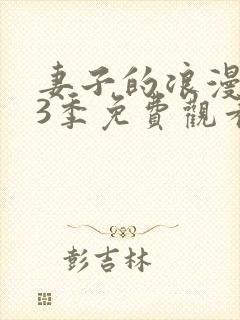 妻子的浪漫
3季免費觀看
彭吉林